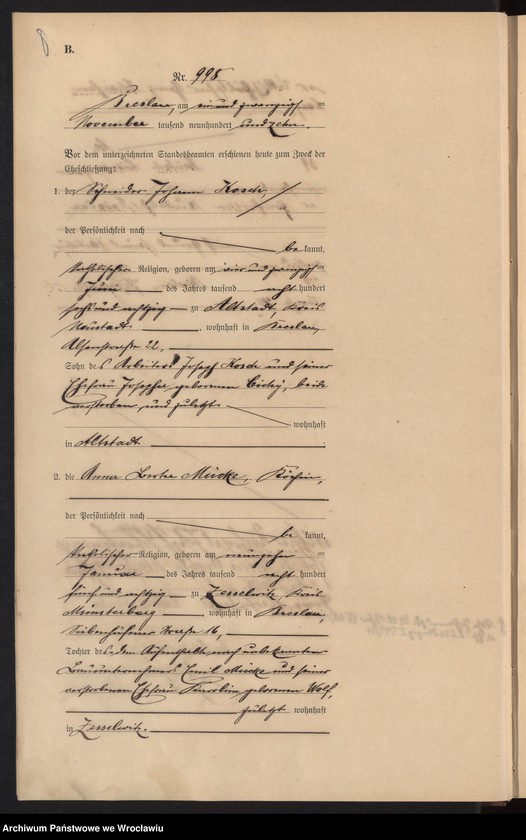 8
B.
Nr. 998
Breslau, am ein und zwanzigsten
November tausend neunhundert und zehn.
Vor dem unterzeichneten Standesbeamten erschienen heute zum Zweck der
Eheschließung:
1. der Schneider Johann Kosch,
der Persönlichkeit nach
be kannt,
katholischer Religion, geboren am vier und zwanzigsten
Juni des Jahres tausend acht hundert
sechs und achtzig zu Altstadt, Kreis
Neustadt, wohnhaft in Breslau,
Alsenstraße 22,
Sohn des Arbeiters Joseph Kosch und seiner
Ehefrau Josepha geborenen Cichy, beide
verstorben und zuletzt
wohnhaft
in Altstadt.
2. die Anna Mücke, Köchin,
der Persönlichkeit nach
be kannt,
katholischer Religion, geboren am neunzehnten
Januar des Jahres tausend acht hundert
fünf und achtzig zu Zesselwitz, Kreis
Münsterberg, wohnhaft in Breslau,
Straße 16,
Tochter des dem Aufenthalte nach unbekannten
Bauunternehmers Emil Mücke und seiner
verstorbenen Ehefrau geborenen Wolf,
zuletzt wohnhaft
in Zesselwitz.
Archiwum Państwowe we Wrocławiu